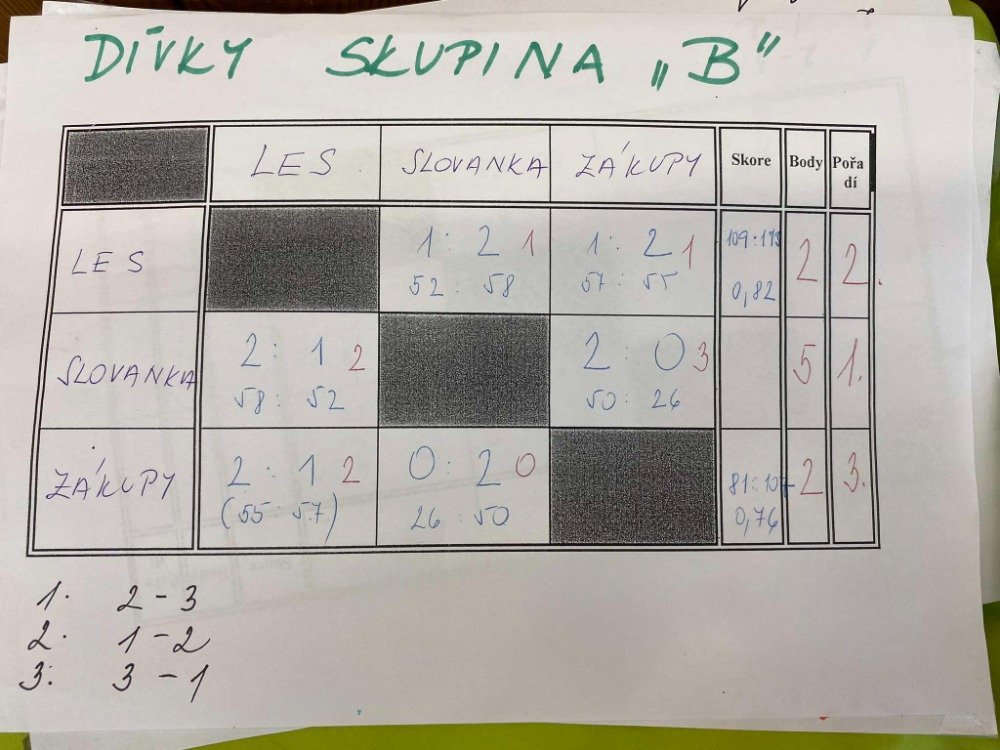 DÍVKY SKUPINA „B"
LES SLOVANKA ZÁKUPY Skore Body Pořa
dí
LES 1 : 2 1 1 : 2 1 109:113 2 2.
52 : 58 57 : 55 0,82
SLOVANKA 2 : 1 2 2 : 0 3 5 1.
58 : 52 50 : 26
ZÁKUPY 2 : 1 2 0 : 2 0 81:107 2 3.
(55 : 57) 26 : 50 0,76
1. 2 - 3
2. 1 - 2
3. 3 - 1